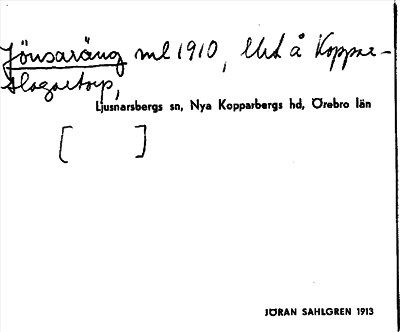 Jönsaräng ml 1910, litt å Koppar-
slagaretorp,
Ljusnarsbergs sn, Nya Kopparbergs hd, Örebro län
[ ]
JÖRAN SAHLGREN 1913